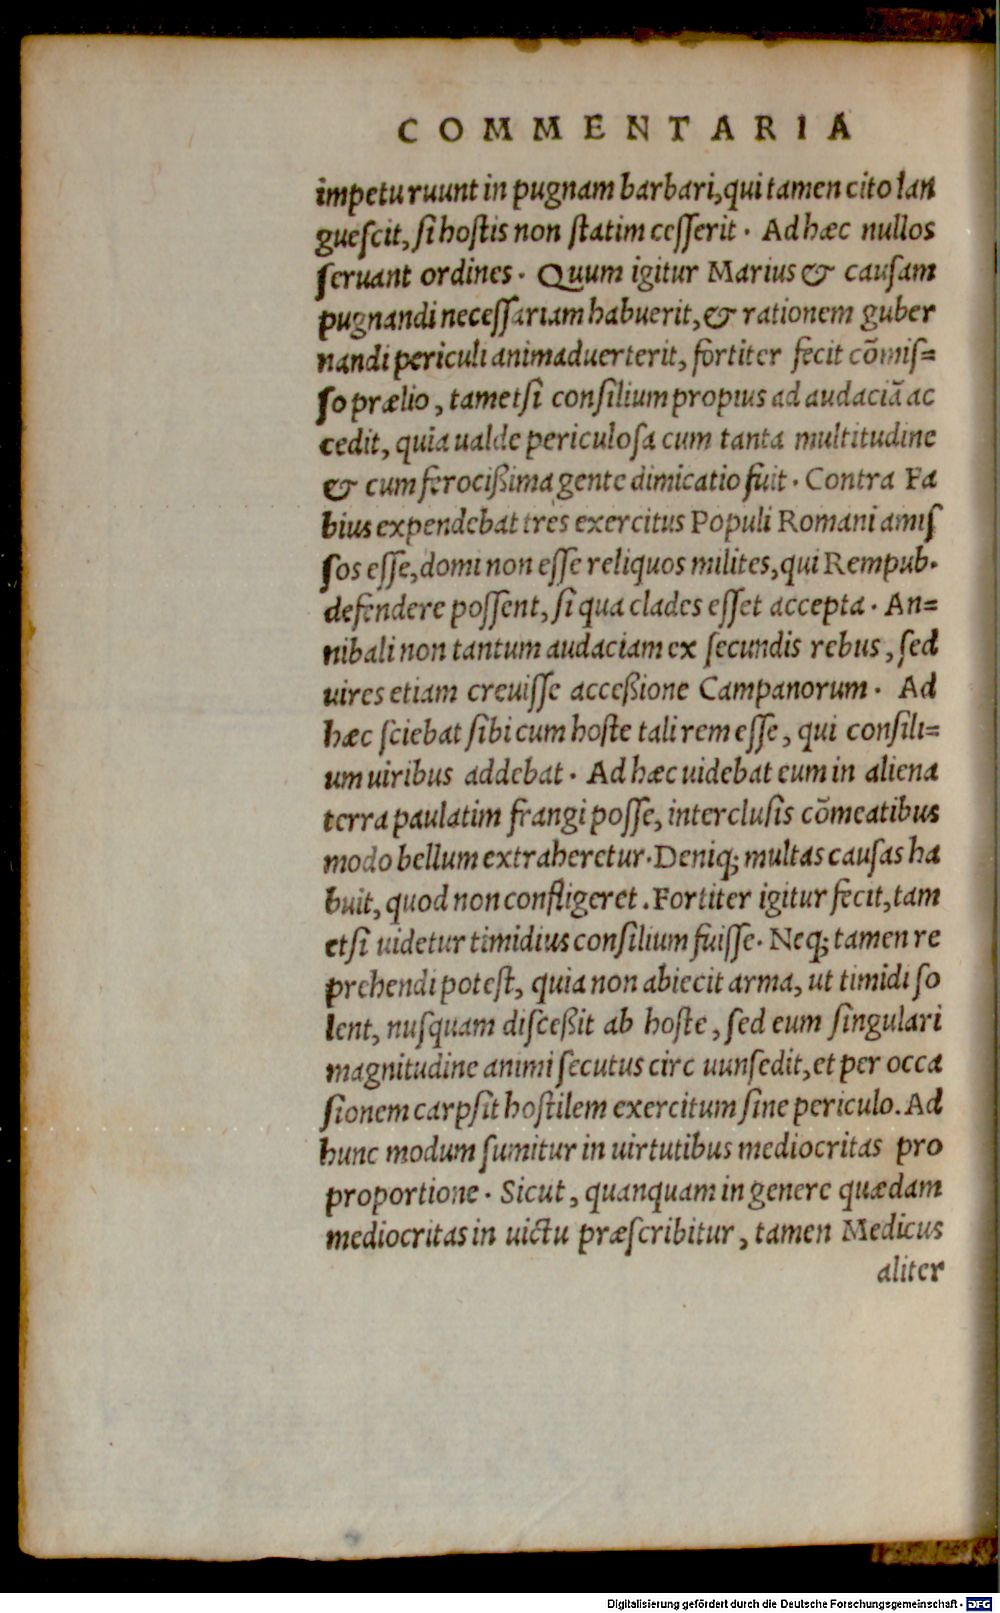 COMMENTARIA
impetu ruunt in pugnam barbari, qui tamen cito lan
gueſcit, ſi hoſtis non ſtatim ceſſerit. Ad hæc nullos
ſeruant ordines. Quum igitur Marius & cauſam
pugnandi neceſſariam habuerit, & rationem guber
nandi periculi animaduerterit, fortiter fecit cõmiſ=
ſo prælio, tametſi conſilium propius ad audaciã ac
cedit, quia ualde periculoſa cum tanta multitudine
& cum ferocißima gente dimicatio fuit. Contra Fa
bius expendebat tres exercitus Populi Romani amiſ
ſos eſſe, domi non eſſe reliquos milites, qui Rempub.
defendere poſſent, ſi qua clades eſſet accepta. An=
nibali non tantum audaciam ex ſecundis rebus, ſed
uires etiam creuiſſe acceßione Campanorum. Ad
hæc ſciebat ſibi cum hoſte tali rem eſſe, qui conſili=
um uiribus addebat. Ad hæc uidebat eum in aliena
terra paulatim frangi poſſe, interclusis cõmeatibus
modo bellum extraheretur. Deniq; multas cauſas ha
buit, quod non confligeret. Fortiter igitur fecit, tam
etſi uidetur timidius conſilium fuiſſe. Neq; tamen re
prehendi poteſt, quia non abiecit arma, ut timidi ſo
lent, nuſquam diſceßit ab hoſte, ſed eum ſingulari
magnitudine animi ſecutus circ uunſedit, et per occa
ſionem carpſit hoſtilem exercitum ſine periculo. Ad
hunc modum ſumitur in uirtutibus mediocritas pro
proportione. Sicut, quanquam in genere quædam
mediocritas in uictu præſcribitur, tamen Medicus
aliter
Digitalisierung gefördert durch die Deutsche Forschungsgemeinschaft - DFG